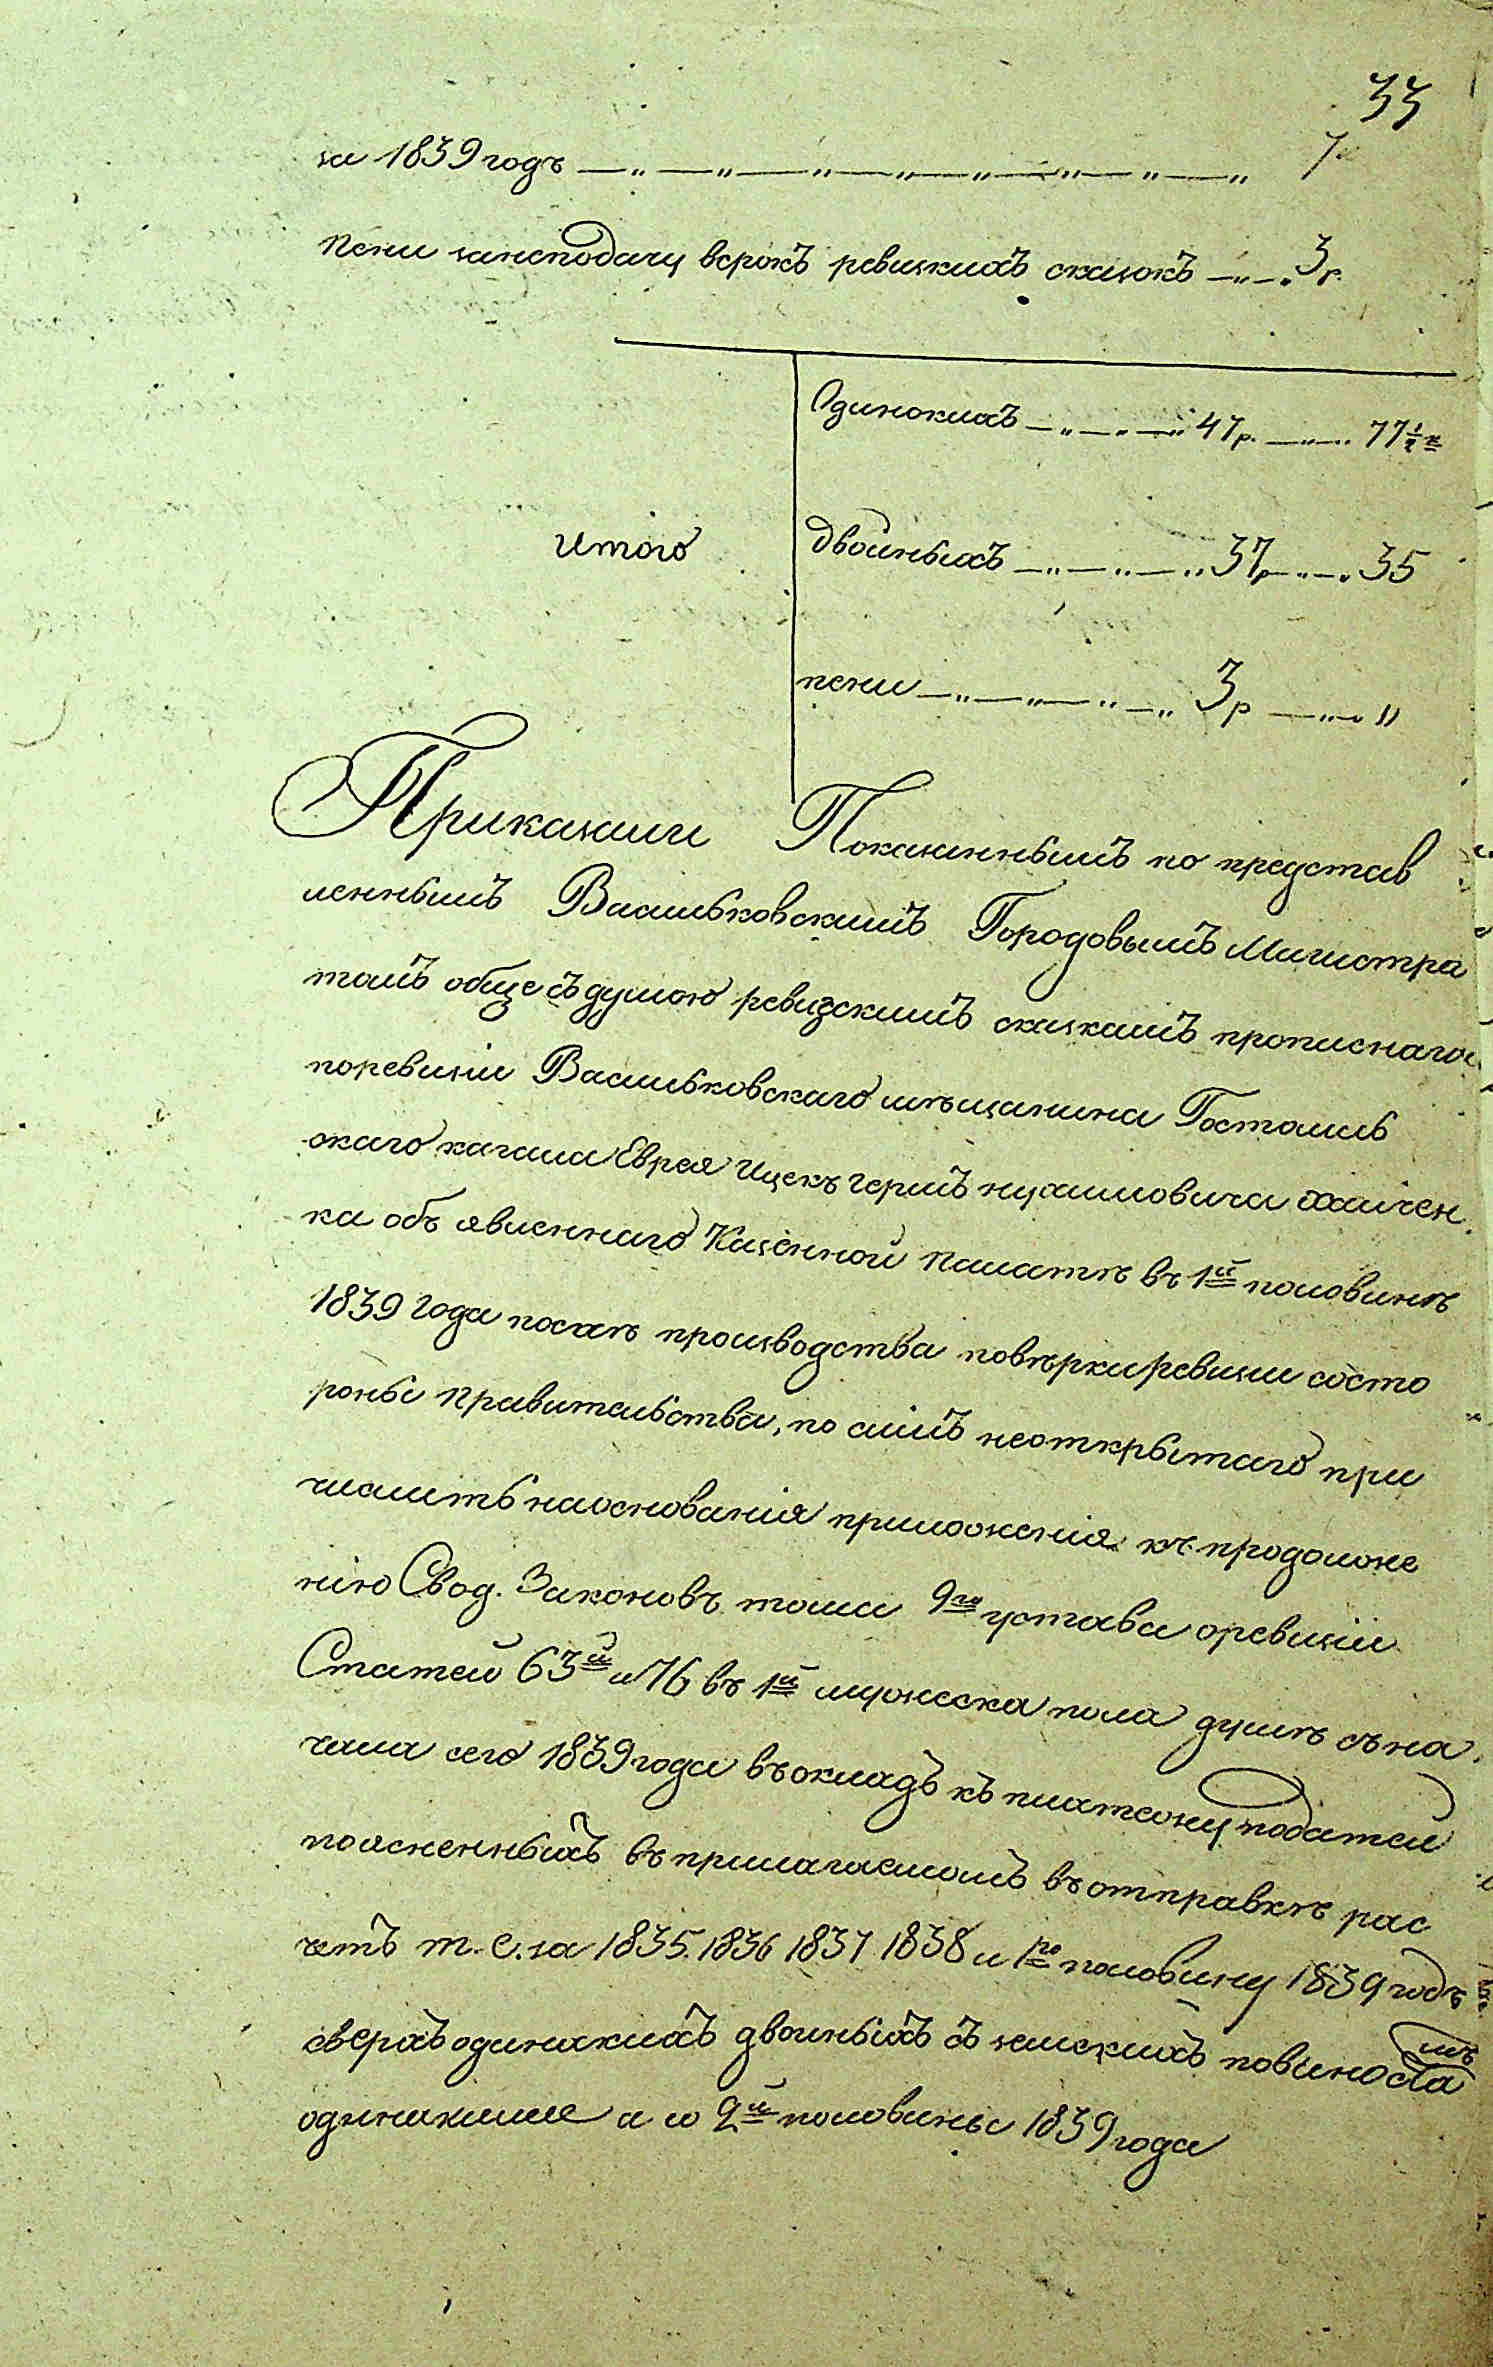 33
за 1839 годъ — „ — „ — „ — „ — „ — „ — „ — „ 7 к
пени занеподачу всрокъ ревизкихъ сказокъ — „ — „ 3 р.
Одинокихъ — „ — „ — „ 47 р. — „ — „ 77 ½ к
Итого
двойныхъ — „ — „ — „ 37 р — „ — „ 35
пени — „ — „ — „ — „ 3 р — „ — „
Приказали Показаннымъ по представ
леннымъ Васильковскимъ Городовымъ Магистра
томъ обще съ думою ревизскимъ сказкамъ прописнаго
поревизіи Васильковскаго мѣщанина Гостомль
скаго кагала Еврея Ицекъ Герша
ка объявленнаго Казенной Палатѣ въ 1й половинѣ
1839 года послѣ производства повѣрки ревизіи состо
роны Правительства, по симъ неоткрытаго при
числить наоснованія приложенія къ продолже
нію Свод. Законовъ тома 9го устава оревизіи
Статей 63й и 76 въ 1й мужеска пола душѣ съ на
чала сего 1839 года въ окладъ къ платежу податей
поясненныхъ въ прилагаемомъ въ отправкѣ рас
четѣ т. е. за 1835. 1836 1837 1838 и 1ю половину 1839 годъ
сверхъ одинакихъ двойныхъ съ земскихъ повиностямъ
одинакими а со 2й половины 1839 года